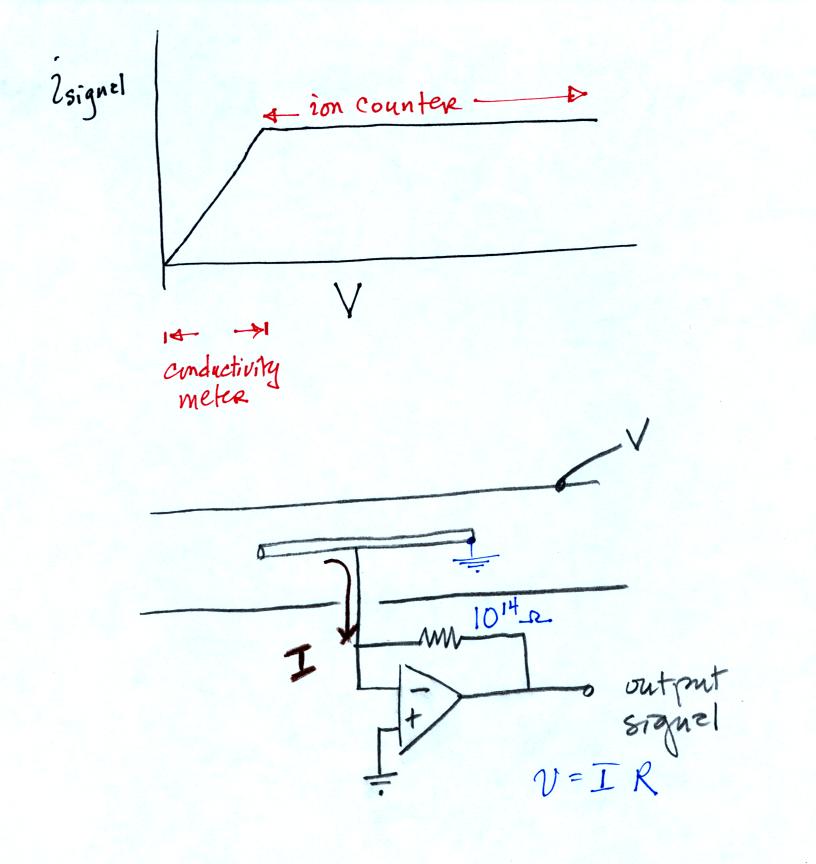 i signal
ion counter
V
conductivity
meter
V
10¹⁴ Ω
I
−
+
output
signal
V = I R